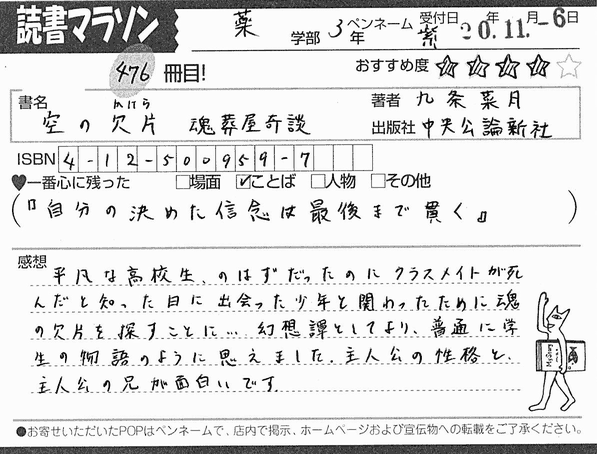 読書マラソン
薬 学部 3年 ペンネーム 紫 受付日 20年11月-6日
476 冊目! おすすめ度 ★★★★☆
書名 空の欠片 魂葬屋奇談
かけら
著者 九条菜月
出版社 中央公論新社
ISBN 4-12-500959-7
♥一番心に残った □場面 ☑ことば □人物 □その他
(『自分の決めた信念は最後まで貫く』)
感想
平凡な高校生、のはずだったのにクラスメイトが死
んだと知った日に出会った少年と関わったために魂
の欠片を探すことに… 幻想譚としてより、普通に学
生の物語のように思えました。主人公の性格と、
主人公の兄が面白いです。
●お寄せいただいたPOPはペンネームで、店内で掲示、ホームページおよび宣伝物への転載をご了承ください。